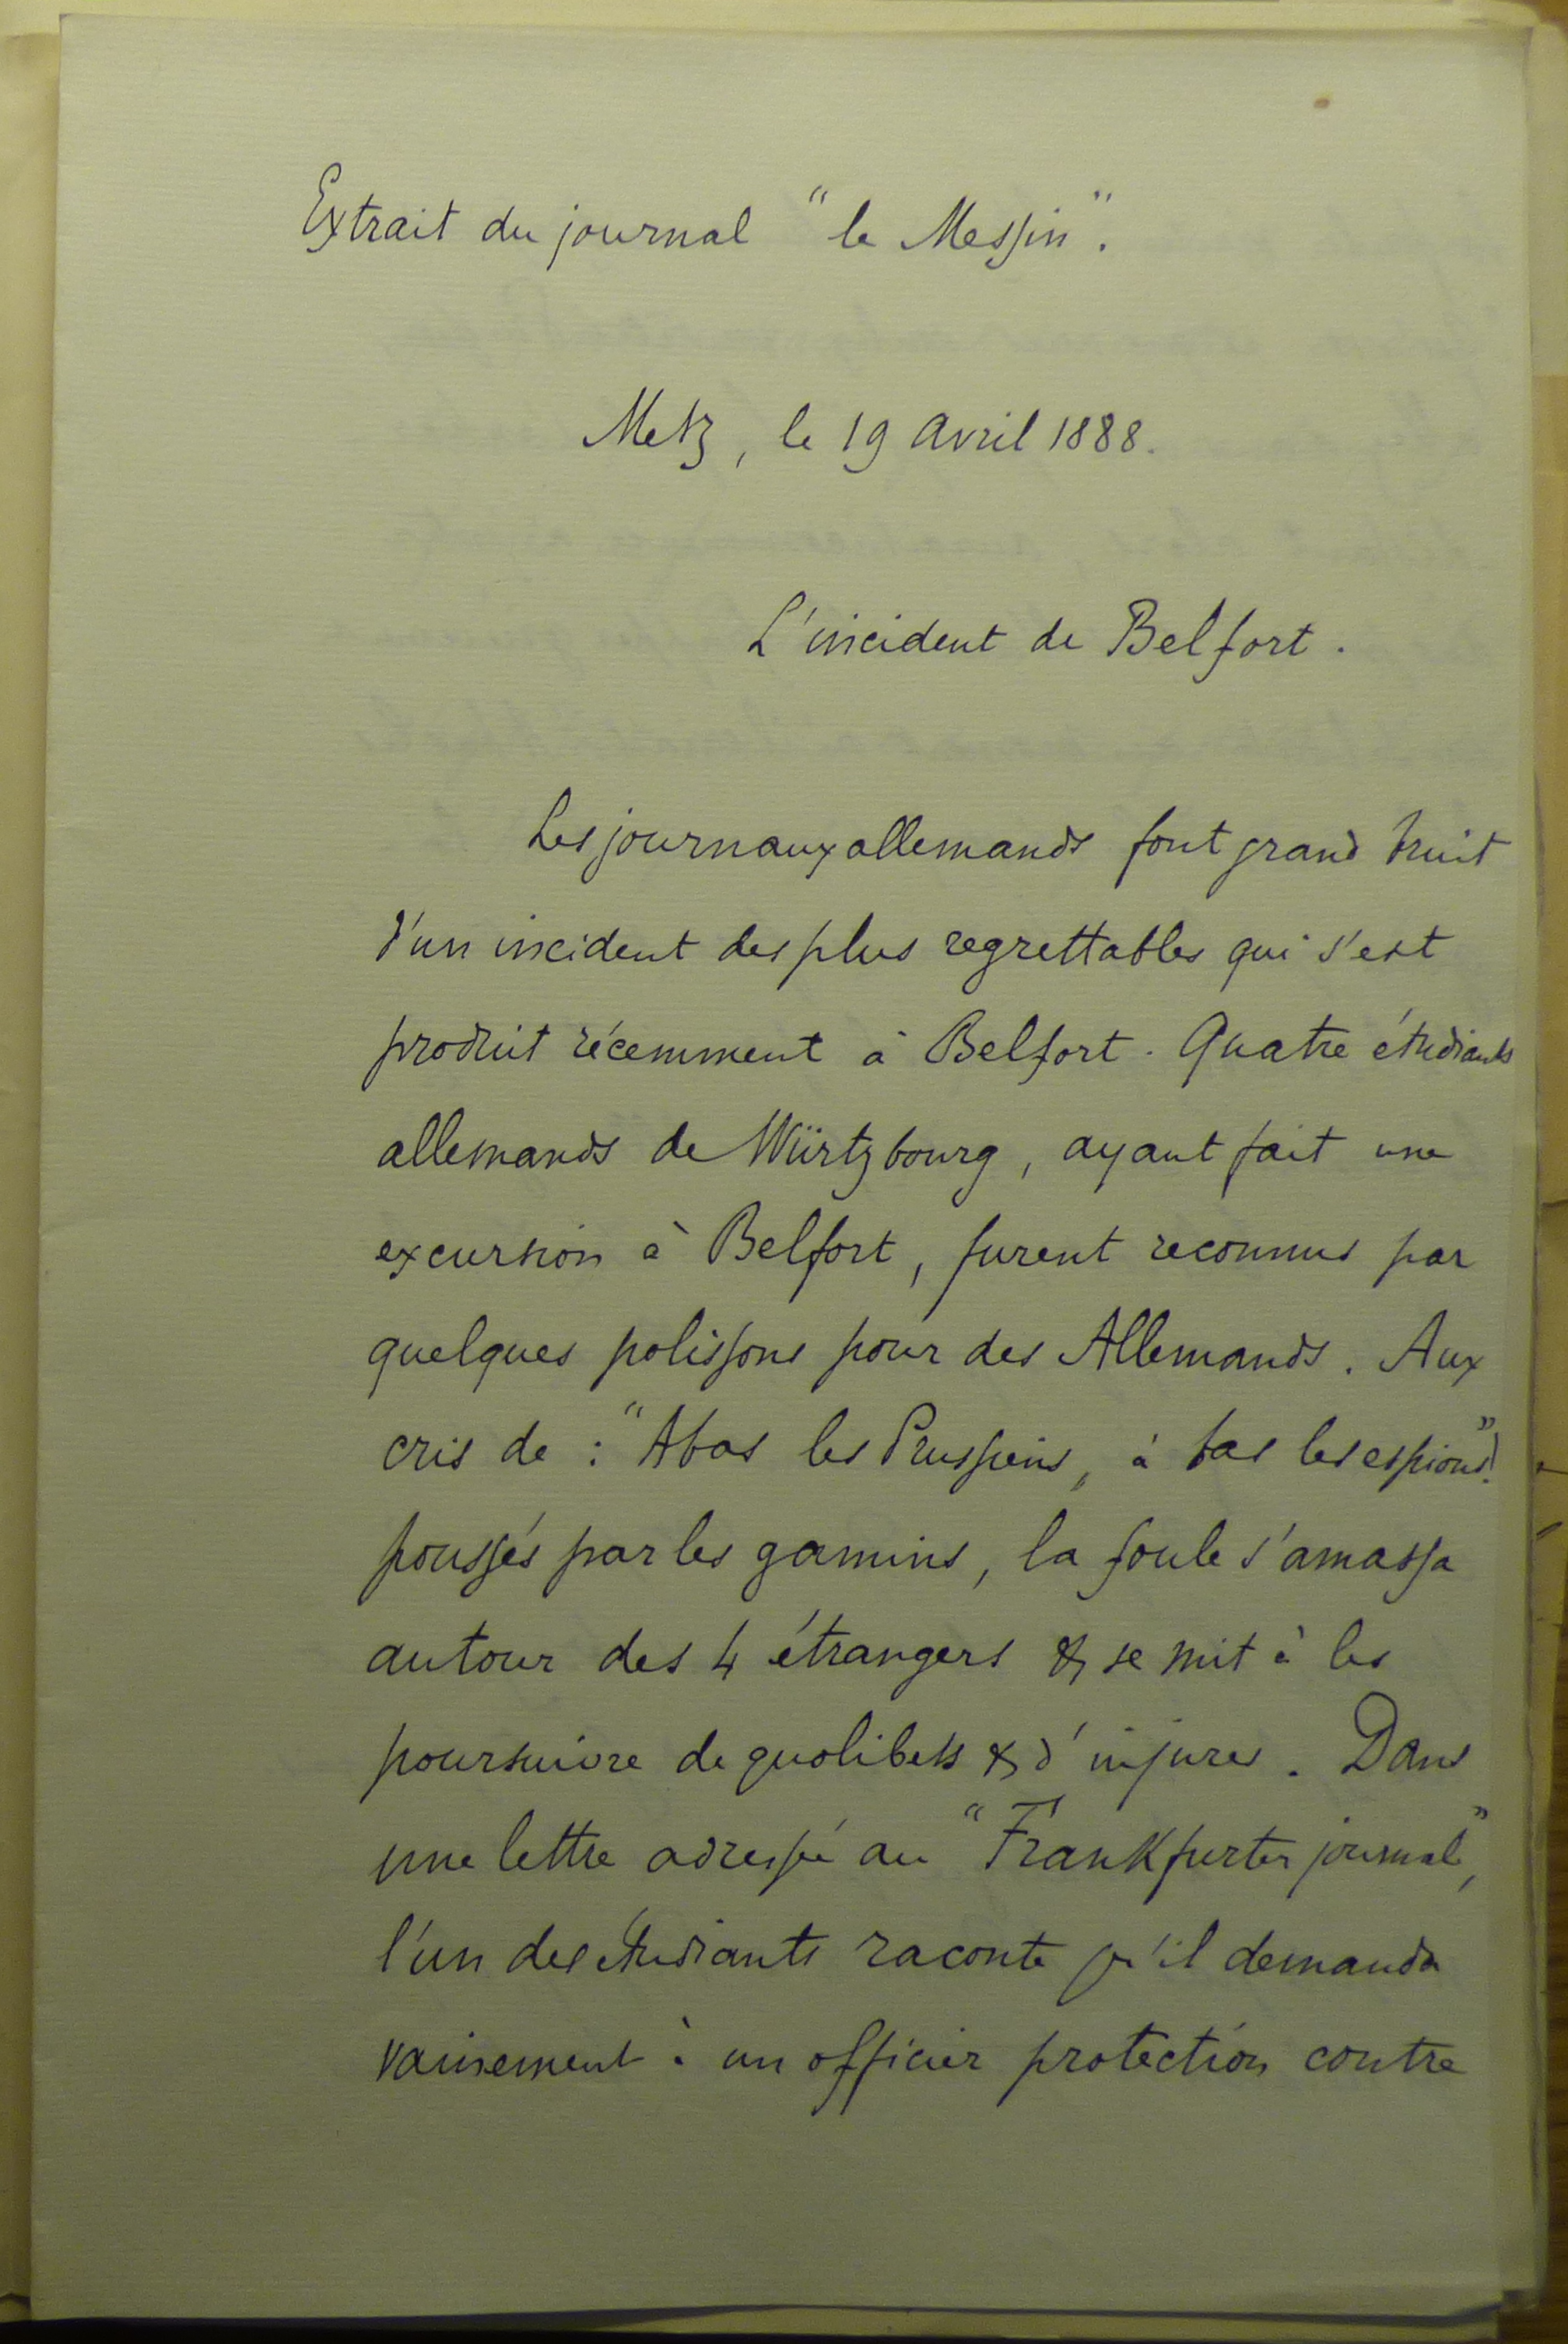 Extrait du journal "le Messin".
Metz, le 19 Avril 1888.
L'incident de Belfort.
Les journaux allemands font grand bruit
d'un incident des plus regrettables qui s'est
produit récemment à Belfort. Quatre étudiants
allemands de Würtzbourg, ayant fait une
excursion à Belfort, furent reconnus par
quelques polissons pour des Allemands. Aux
cris de : "A bas les Prussiens, à bas les espions!"
poussés par les gamins, la foule s'amassa
autour des 4 étrangers & se mit à les
poursuivre de quolibets & d'injures. Dans
une lettre adressée au "Frankfurter journal",
l'un des étudiants raconte qu'il demanda
vainement à un officier protection contre